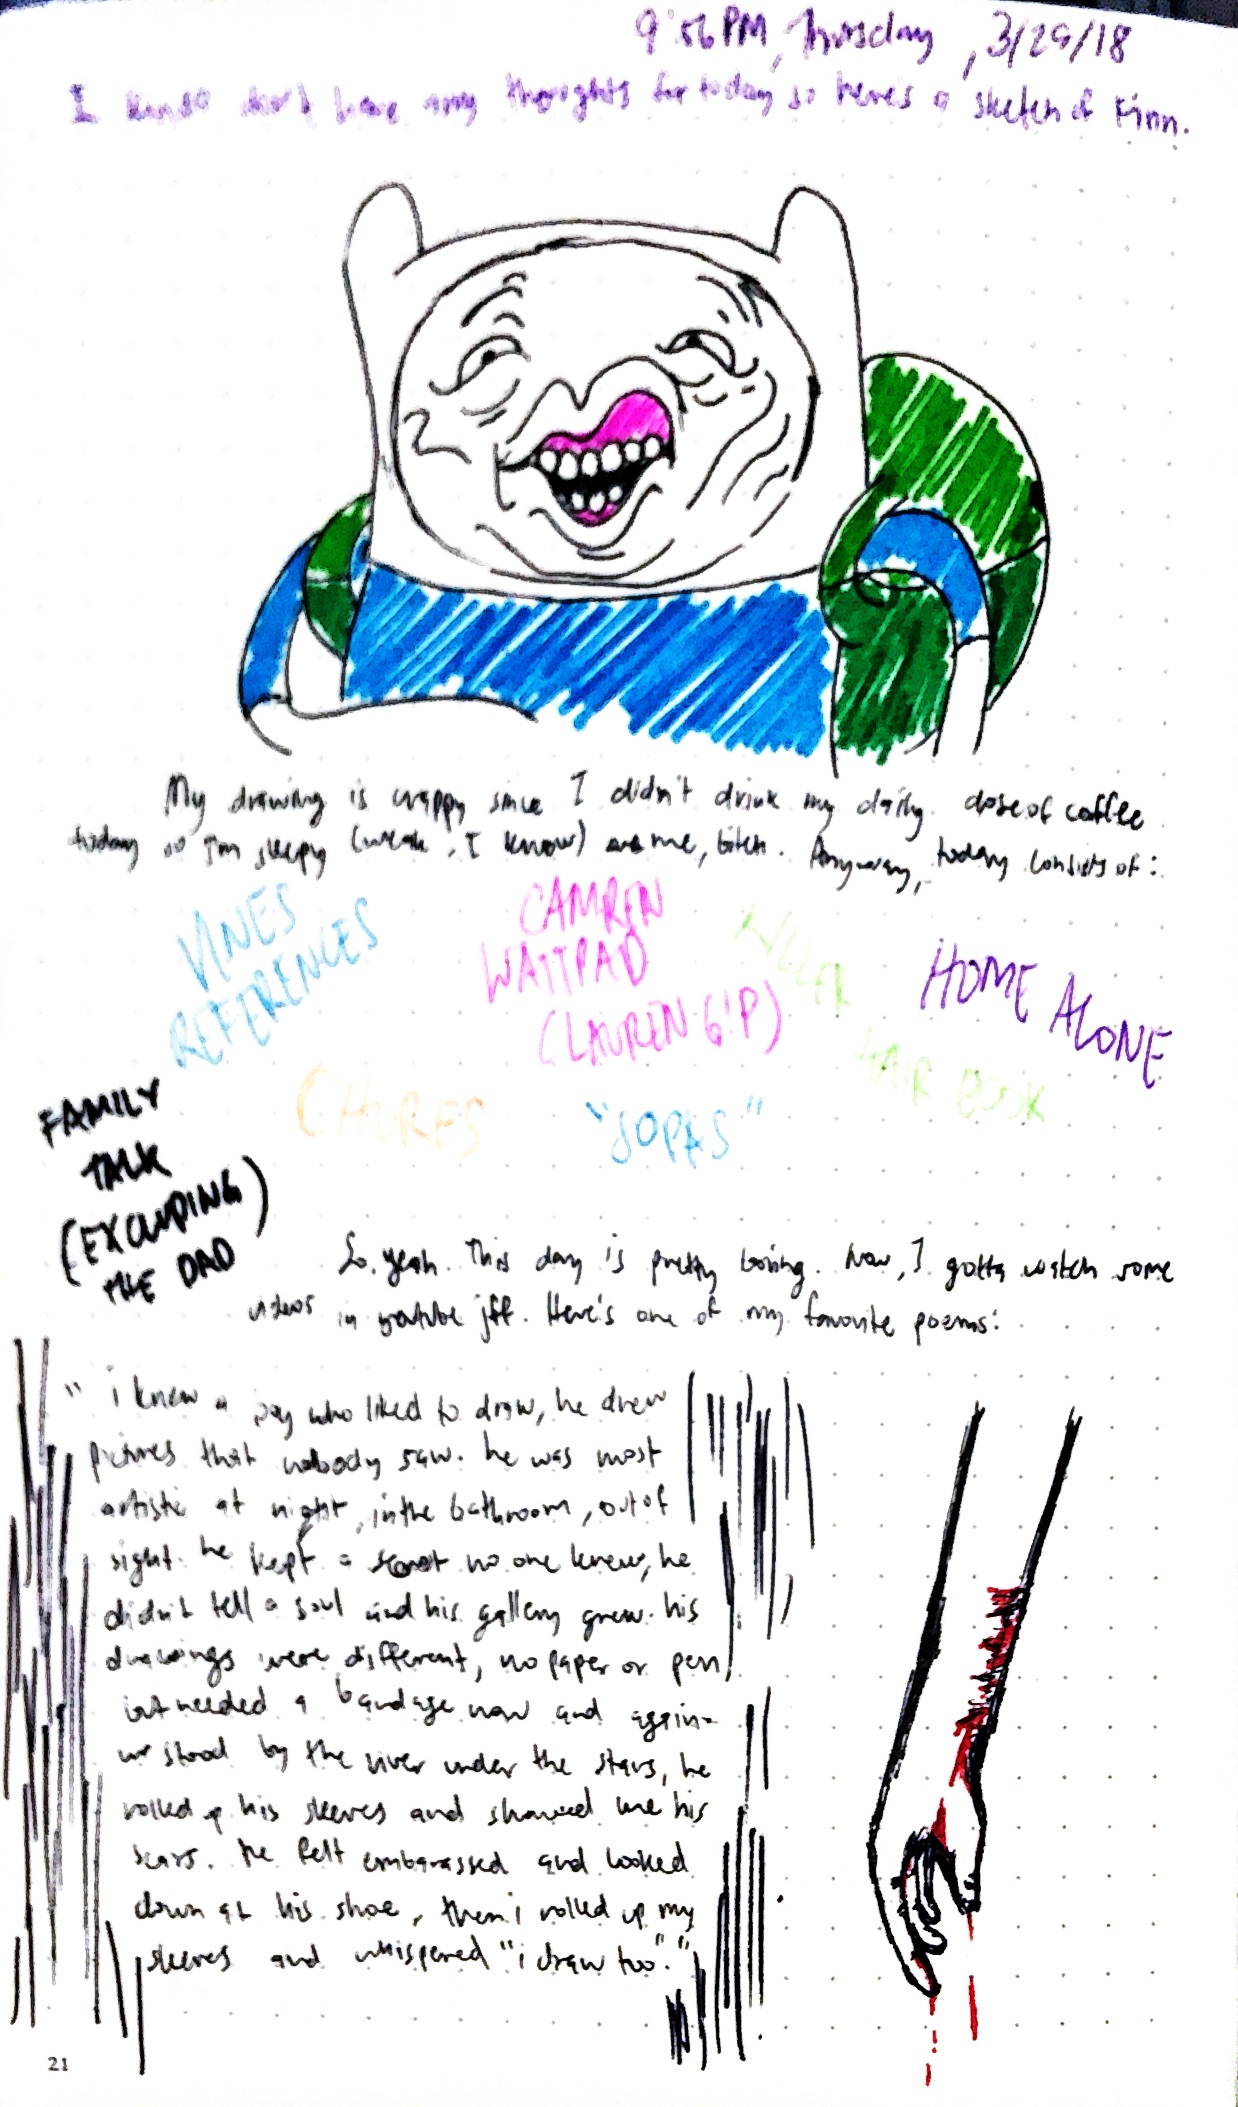 9:56 PM, Thursday, 3/29/18
I kinda don't have any thoughts for today so here's a sketch of Finn.
My drawing is crappy since I didn't drink my daily dose of coffee
today so I'm sleepy (weak, I know) me, bitch. Anyway, today consists of:
VINES
REFERENCES
CAMREN
WATTPAD
(LAUREN G!P)
HAIR BOOK
HOME ALONE
CHORES
"SOPAS"
FAMILY
TALK
(EXCLUDING)
THE DAD
So, yeah. This day is pretty boring. Now, I gotta watch some
videos in youtube jff. Here's one of my favorite poems:
"i knew a boy who liked to draw, he drew
pictures that nobody saw. he was most
artistic at night, in the bathroom, out of
sight. he kept a secret no one knew, he
didn't tell a soul and his gallery grew. his
drawings were different, no paper or pen,
but needed a bandage now and again.
we stood by the river under the stars, he
rolled up his sleeves and showed me his
scars. he felt embarassed and looked
down at his shoe, then i rolled up my
sleeves and whispered "i draw too"."
21